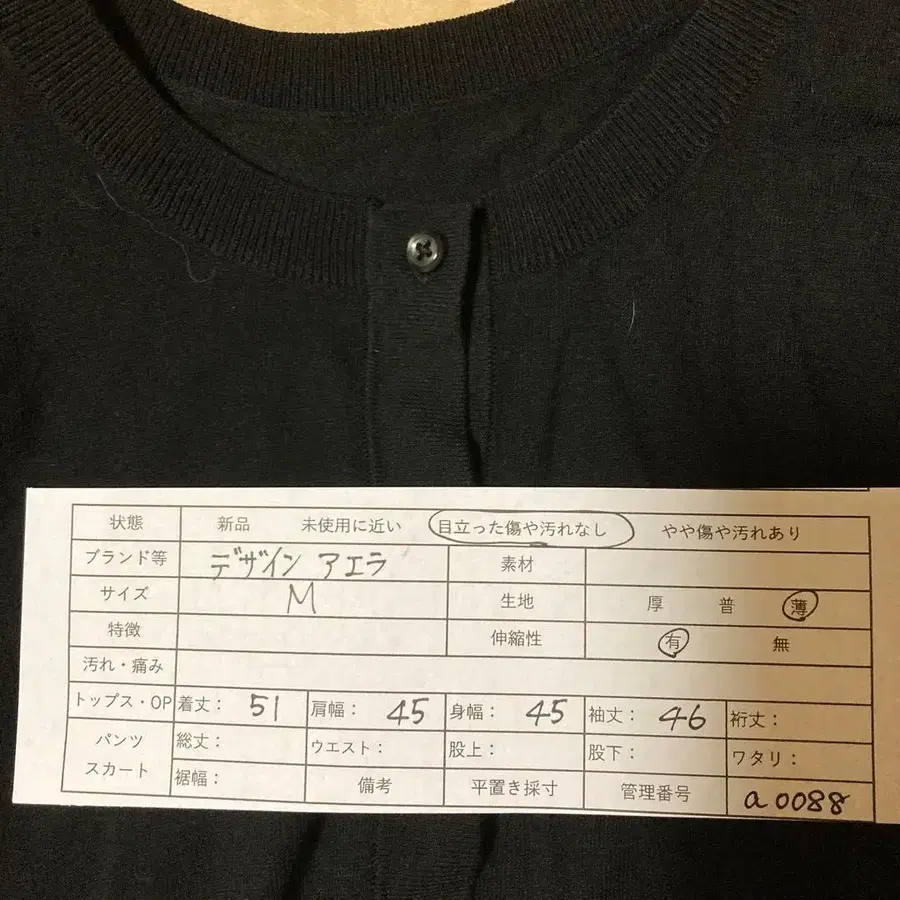 状態 新品 未使用に近い 目立った傷や汚れなし やや傷や汚れあり
ブランド等 デザイン アエラ 素材
サイズ M 生地 厚 普 薄
特徴 伸縮性 有 無
汚れ・痛み
トップス・OP 着丈: 51 肩幅: 45 身幅: 45 袖丈: 46 裄丈:
パンツ 総丈: ウエスト: 股上: 股下: ワタリ:
スカート 裾幅: 備考 平置き採寸 管理番号 a0088